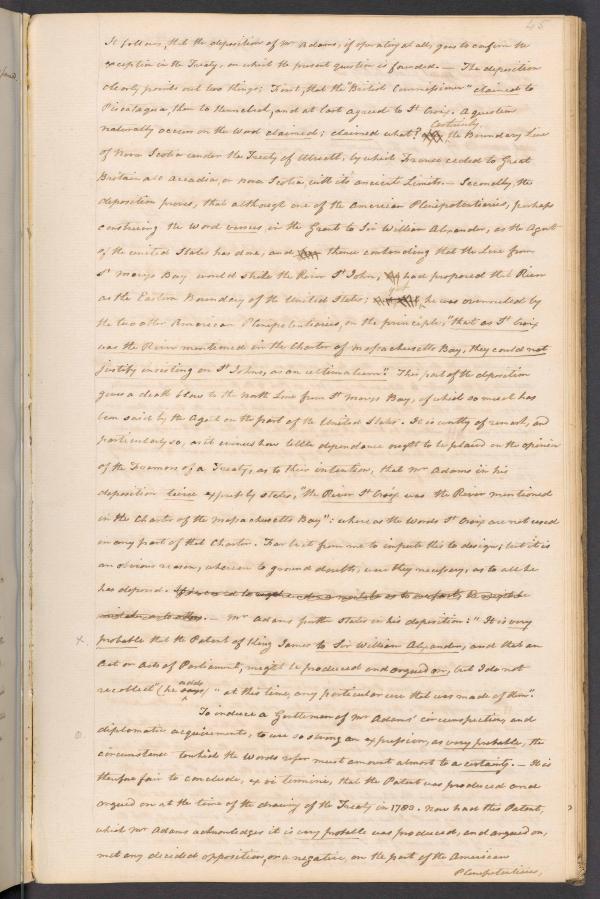 45
It follows, that the deposition of Mr Adams, if operating at all, goes to confirm the
exception in the Treaty, on which the present question is founded. — The deposition
clearly points out two things; First, that the "British Commissioner" claimed to
Piscataqua, then to Kennebec, and at last agreed to St Croix. A question
Certainly
naturally occurs on the word claimed; claimed what? the Boundary Line
of Nova Scotia under the Treaty of Utrecht, by which France ceded to Great
Britain all Accadia, or Nova Scotia, with its ancient Limits. — Secondly, the
deposition proves, that although one of the American Plenipotentiaries, perhaps
construing the word versus, in the Grant to Sir William Alexander, as the Agent
of the united States has done, and thence contending that the Line from
St Marys Bay would strike the River St John, had proposed that River
as the Eastern Boundary of the United States; yet he was overruled by
the two other American Plenipotentiaries, on the principle, "that as St Croix
was the River mentioned in the Charter of Massachusetts Bay, they could not
justify insisting on St Johns, as an ultimatum". This part of the deposition
gives a death blow to the north Line from St Marys Bay, of which so much has
been said by the Agent on the part of the United States. It is worthy of remark, and
particularly so, as it evinces how little dependance ought to be placed on the opinion
of the Framers of a Treaty, as to their intention, that Mr Adams in his
deposition twice expressly states, "the River St Croix was the River mentioned
in the Charter of the Massachusetts Bay": whereas the words St Croix are not used
in any part of that Charter. Far be it from me to impute this to design; but it is
an obvious reason, whereon to ground doubts, were they necessary, as to all he
has deposed. If he erred
mistaken as to others. — Mr Adams further states in his deposition: "It is very
x probable that the Patent of King James to Sir William Alexander, and that an
Act or Acts of Parliament, might be produced and argued on, but I do not
adds
recollect" (he says) "at this time, any particular use that was made of them".
To induce a Gentleman of Mr Adams' circumspection, and
o diplomatic acquirements, to use so strong an expression, as very probable, the
circumstance to which the words refer must amount almost to a certainty. — It is
therefore fair to conclude, ex vi termini, that the Patent was produced and
argued on at the time of the drawing of the Treaty in 1783. Now had this Patent,
which Mr Adams acknowledges it is very probable was produced, and argued on,
met any decided opposition, or a negative, on the part of the American
Plenipotentiaries,